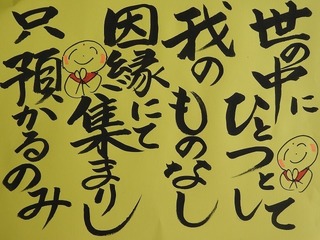 世の中に
ひとつとして
我の
ものなし
因縁にて
集まりし
只預かるのみ